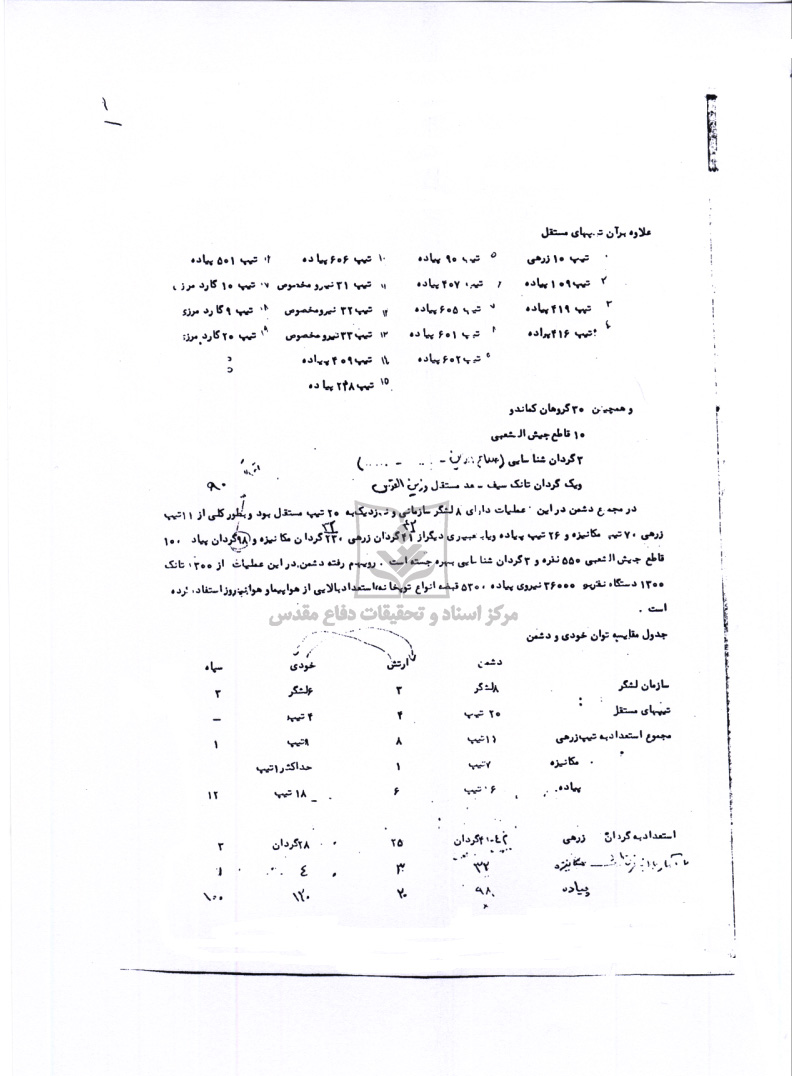 ۱
علاوه برآن تیپهای مستقل
۱ تیپ ۱۰ زرهی ۵ تیپ ۹۰ پیاده ۱۰ تیپ ۶۰۶ پیاده ۱۶ تیپ ۵۰۱ پیاده
۲ تیپ ۱۰۹ پیاده ۶ تیپ ۴۰۷ پیاده ۱۱ تیپ ۳۱ نیرو مخصوص ۱۷ تیپ ۱۰ گارد مرزی
۳ تیپ ۴۱۹ پیاده ۷ تیپ ۶۰۵ پیاده ۱۲ تیپ ۳۲ نیرومخصوص ۱۸ تیپ ۹ گارد مرزی
۴ تیپ ۴۱۶ پیاده ۸ تیپ ۶۰۱ پیاده ۱۳ تیپ ۳۳ نیرو مخصوص ۱۹ تیپ ۲۰ گارد مرزی
تیپ ۶۰۲ پیاده ۱۴ تیپ ۴۰۹ پیاده
۱۵ تیپ ۲۴۸ پیاده
و همچنین ۳۰ گروهان کماندو
۱۰ قاطع جیش الشعبی
۲ گردان شناسایی
ویک گردان تانک سیف - سعد مستقل
۹۰
در مجموع دشمن در این عملیات دارای ۸ لشگر سازمانی و نزدیک به ۲۰ تیپ مستقل بود و بطور کلی از ۱۱ تیپ
زرهی ۷۰ تیپ مکانیزه و ۲۶ تیپ پیاده ویا بتعبیری دیگر از ۴۱ گردان زرهی ۲۳۰ گردان مکانیزه و ۹۸ گردان پیاده ۱۰۰
قاطع جیش الشعبی ۵۵۰ نفره و ۲ گردان شناسایی بهره جسته است . رویهم رفته دشمن در این عملیات از ۱۳۰۰ تانک
۱۳۰۰ دستگاه نفربر ۳۶۰۰۰ نیروی پیاده ۵۳۰۰ قبضه انواع توپخانه و استعداد بالایی از هواپیما و هوانیروز استفاده کرده
است .
مرکز اسناد و تحقیقات دفاع مقدس
جدول مقایسه توان خودی و دشمن
دشمن ارتش خودی سپاه
سازمان لشگر ۸ لشگر ۳ ۶ لشگر ۳
تیپهای مستقل ۲۰ تیپ ۴ ۴ تیپ –
مجموع استعداد به تیپ زرهی ۱۱ تیپ ۸ ۹ تیپ ۱
مکانیزه ۷ تیپ ۱ حداکثر ۱ تیپ
پیاده ۶ ۱۸ تیپ ۱۲
استعداد به گردان زرهی ۴۱-۴۲ گردان ۲۵ ۲۸ گردان ۳
مکانیزه ۳۲ ۳ ۴ ۱
پیاده ۹۸ ۲۰ ۱۲۰ ۱۰۰